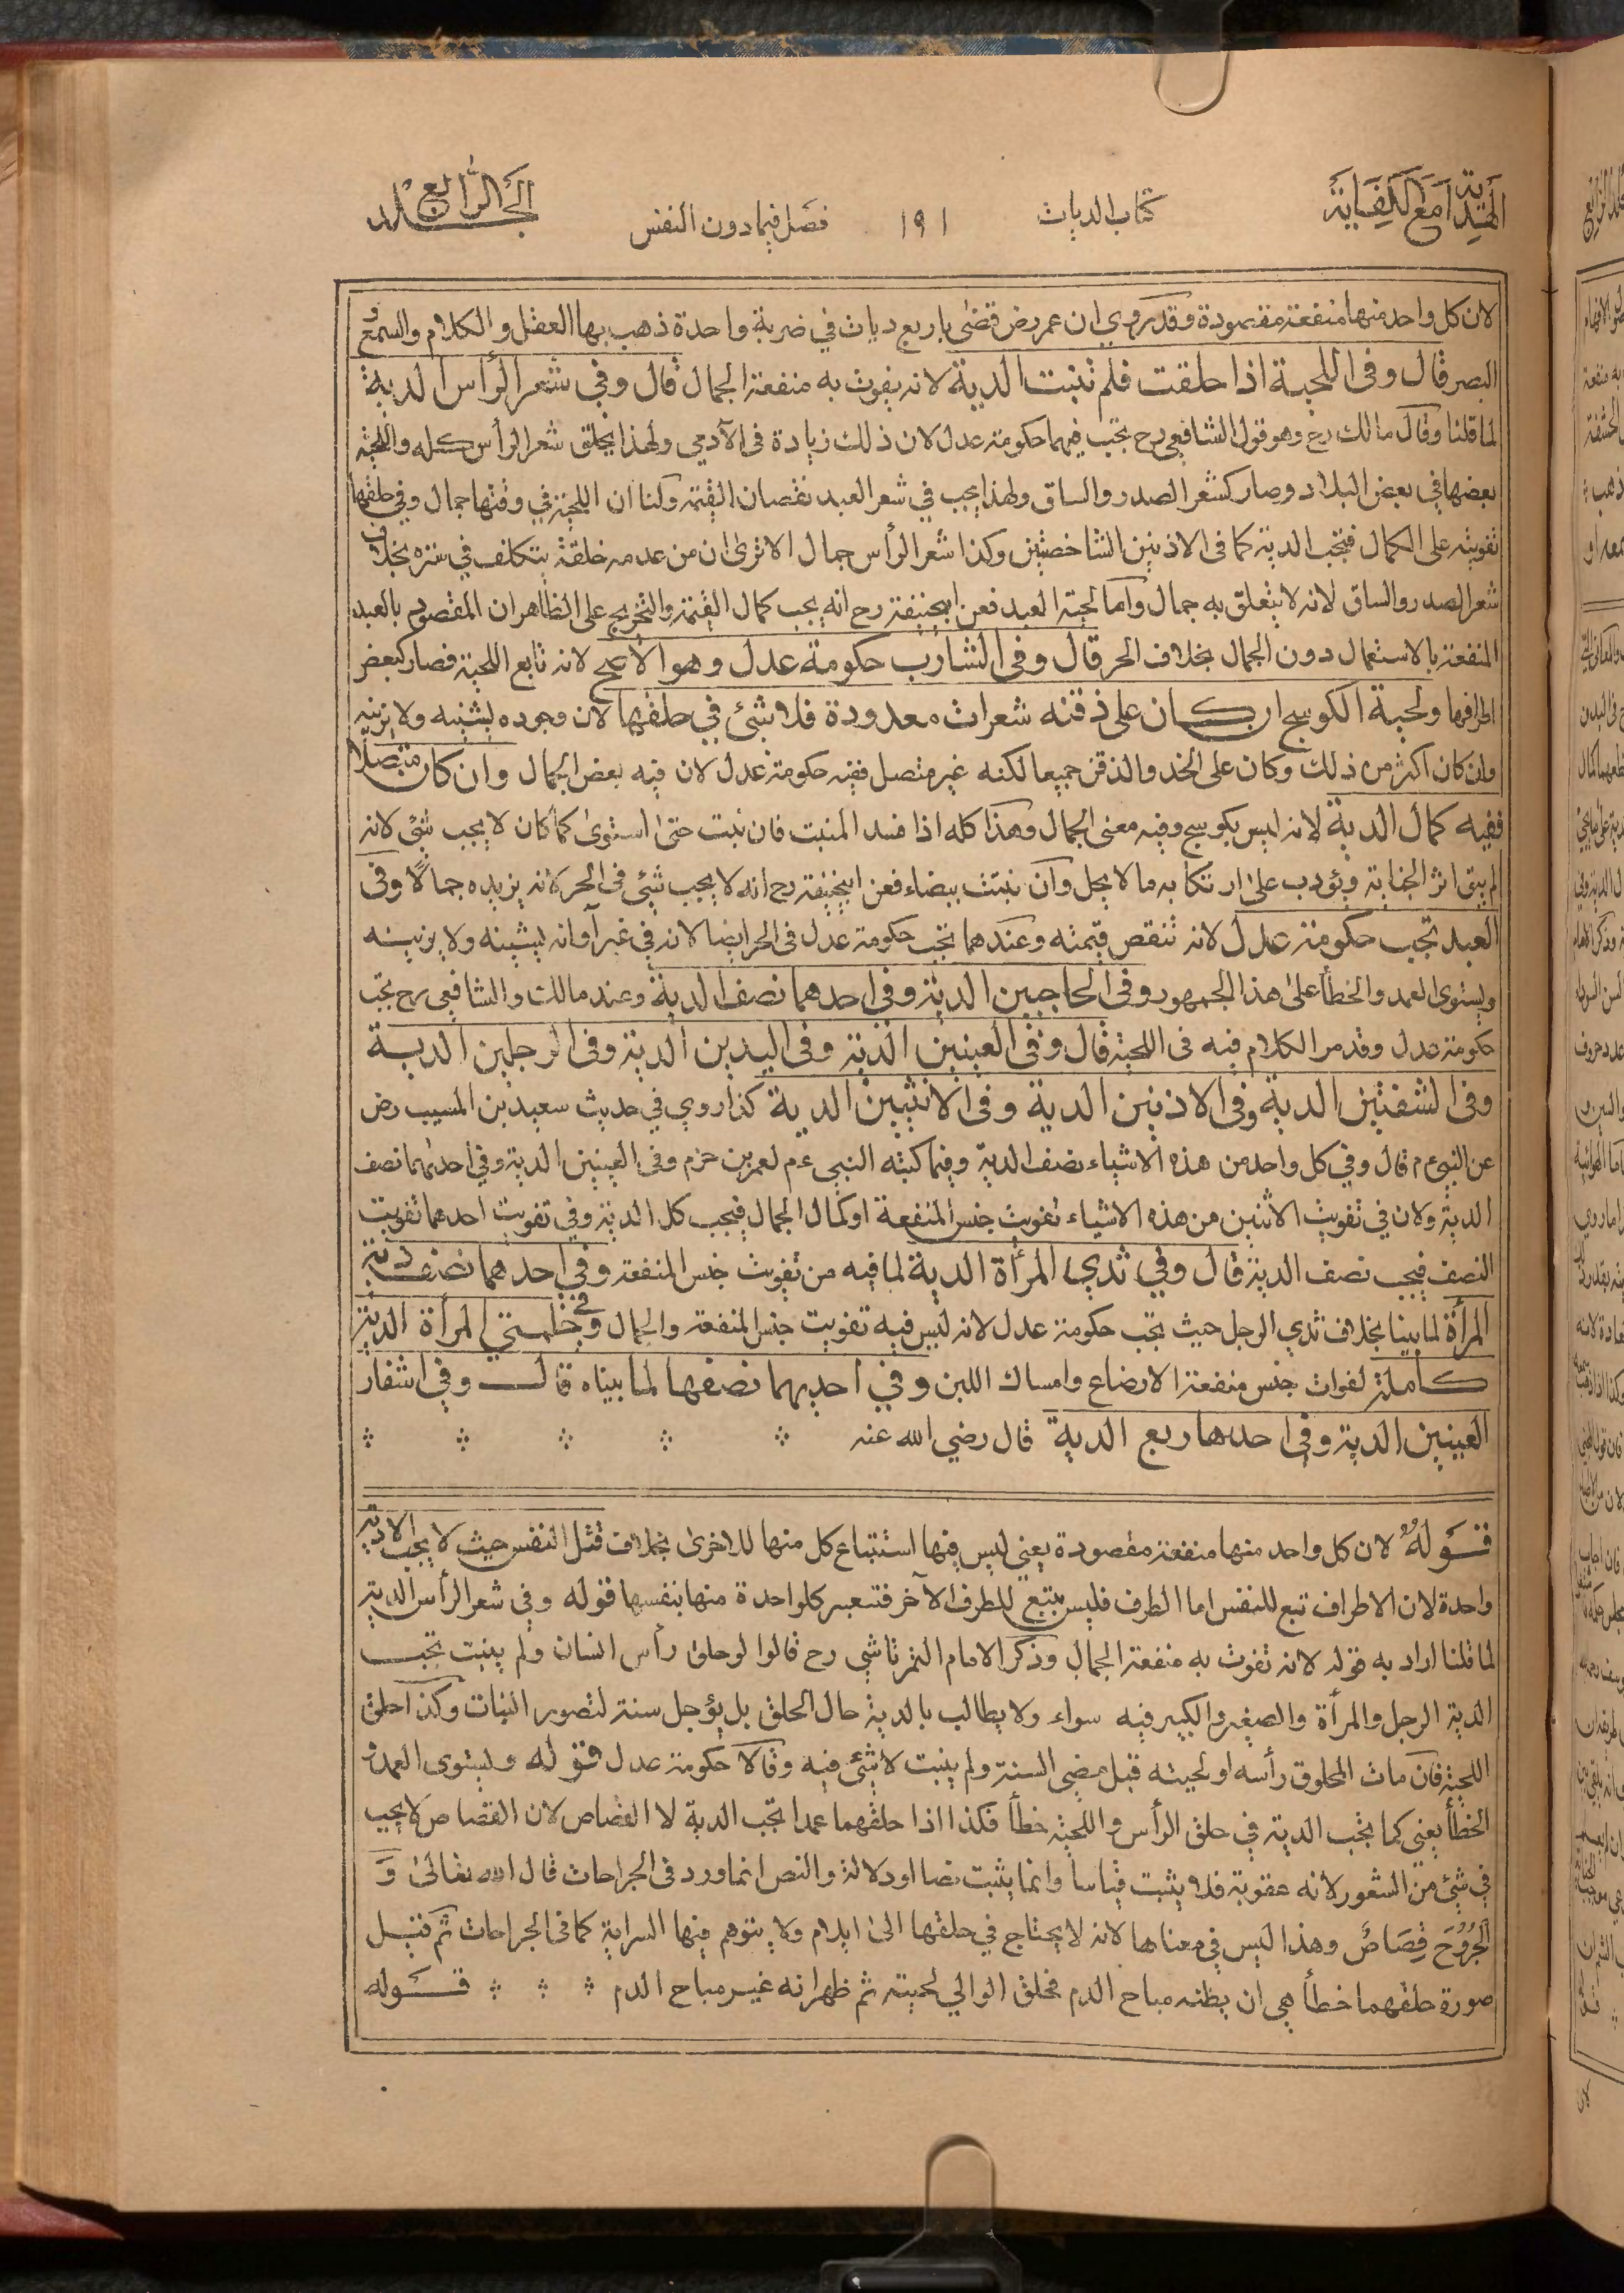 الهداية مع الكفاية
كتاب الديات
١٩١
فصل فيما دون النفس
الجلد الرابع
لان كل واحد منها منفعة مقصودة وقد روي ان عمر رض قضى باربع ديات في ضربة واحدة ذهب بها العقل و الكلام والسمع و
البصر قال وفى اللحية اذا حلقت فلم تنبت الدية لانه يفوت به منفعة الجمال قال وفي شعر الرأس الدية
لما قلنا وقال مالك رح وهو قول الشافعي رح تجب فيهما حكومة عدل لان ذلك زيادة فى الآدمي ولهذا يحلق شعر الرأس كله واللحية
بعضها في بعض البلاد وصار كشعر الصدر والساق ولهذا يجب في شعر العبد نقصان القيمة ولنا ان اللحية في وقتها جمال وفي حلقها
تفويته على الكمال فتجب الدية كما فى الاذنين الشاخصتين وكذا شعر الرأس جمال الا ترى ان من عدمه خلقة يتكلف في ستره بخلاف
شعر الصدر والساق لانه لا يتعلق به جمال واما لحية العبد فعن ابيحنيفة رح انه يجب كمال القيمة والتخريج على الظاهر ان المقصود بالعبد
المنفعة بالاستعمال دون الجمال بخلاف الحر قال وفى الشارب حكومة عدل وهو الاصح لانه تابع اللحية فصار كبعض
اطرافها ولحية الكوسج ان كان على ذقنه شعرات معدودة فلا شئ في حلقها لان وجوده يشينه ولا يزينه
وان كان اكثر من ذلك وكان على الخد والذقن جميعا لكنه غير متصل ففيه حكومة عدل لان فيه بعض الجمال وان كان متصلا
ففيه كمال الدية لانه ليس بكوسج وفيه معنى الجمال وهذا كله اذا فسد المنبت فان نبت حتى استوى كما كان لا يجب شئ لانه
لم يبق اثر الجناية ويؤدب على ارتكابه ما لا يحل وان نبتت بيضاء فعن ابيحنيفة رح انه لا يجب شئ فى الحر لانه يزيده جمالًا وفى
العبد تجب حكومة عدل لانه تنقص قيمته وعندهما تجب حكومة عدل فى الحر ايضا لانه في غير آوانه يشينه ولا يزينه
ويستوى العمد والخطأ على هذا الجمهور وفى الحاجبين الدية وفى احدهما نصف الدية وعند مالك والشافعي رح تجب
حكومة عدل وقد مر الكلام فيه فى اللحية قال وفى العينين الدية وفى اليدين الدية وفى الرجلين الدية
وفى الشفتين الدية وفى الاذنين الدية وفى الانثيين الدية كذا روي في حديث سعيد بن المسيب رض
عن النبي ع م قال وفي كل واحد من هذه الاشياء نصف الدية وفيما كتبه النبي ع م لعمر بن حزم وفى العينين الدية وفي احدٰيهما نصف
الدية ولان في تفويت الاثنين من هذه الاشياء تفويت جنس المنفعة او كمال الجمال فيجب كل الدية وفي تفويت احدهما تفويت
النصف فيجب نصف الدية قال وفي ثدي المرأة الدية لما فيه من تفويت جنس المنفعة وفي احدهما نصف دية
المرأة لما بينا بخلاف ثدي الرجل حيث تجب حكومة عدل لانه ليس فيه تفويت جنس المنفعة والجمال وفي حلمتي المرأة الدية
كاملة لفوات جنس منفعة الارضاع وامساك اللبن وفي احديهما نصفها لما بيناه قال وفي اشفار
العينين الدية وفي احدها ربع الدية قال رضي الله عنه
قوله لان كل واحد منها منفعة مقصودة يعني ليس فيها استتباع كل منها للاخرى بخلاف قتل النفس حيث لا يجب الا دية
واحدة لان الاطراف تبع للنفس اما الطرف فليس بتبع للطرف الآخر فتعتبر كلواحدة منها بنفسها قوله وفي شعر الرأس الدية
لما قلنا اراد به قوله لانه تفوت به منفعة الجمال وذكر الامام التمرتاشي رح قالوا لو حلق رأس انسان ولم ينبت تجب
الدية الرجل والمرأة والصغير والكبير فيه سواء ولا يطالب بالدية حال الحلق بل يؤجل سنة لتصور النبات وكذا حلق
اللحية فان مات المحلوق رأسه او لحيته قبل مضي السنة ولم ينبت لا شئ فيه وقالا حكومة عدل قوله ويستوى العمد و
الخطأ يعني كما يجب الدية في حلق الرأس واللحية خطأ فكذا اذا حلقهما عمدا تجب الدية لا القصاص لان القصاص لا يجب
في شئ من الشعور لانه عقوبة فلا يثبت قياسا وانما يثبت نصا او دلالة والنص انما ورد فى الجراحات قال الله تعالىٰ وَ
الْجُرُوْحَ قِصَاصٌ وهذا ليس في معناها لانه لا يحتاج في حلقها الى ايلام ولا يتوهم فيها السراية كما فى الجراحات ثم قتيل
صورة حلقهما خطأ هي ان يظنه مباح الدم فحلق الوالي لحيته ثم ظهر انه غير مباح الدم قوله